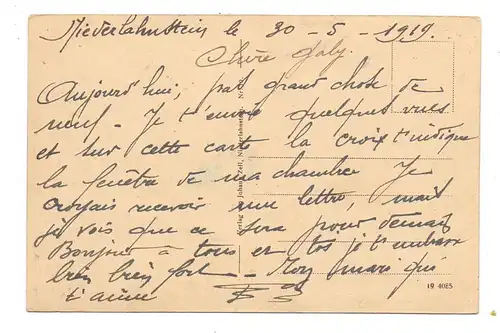 Niederlahnstein le 30-5-1919.
Chère Gaby.
Aujourd'hui, pas grand chose de
neuf - Je t'envoie quelques vues
et sur cette carte la croix t'indique
la fenêtre de ma chambre Je
croyais recevoir une lettre, mais
je vois que ce sera pour demain
Bonjour à tous et toi je t'embrasse
bien bien fort - Ton mari qui
t'aime
Verlag Johann Zell, Niederlahnstein.
19 4085